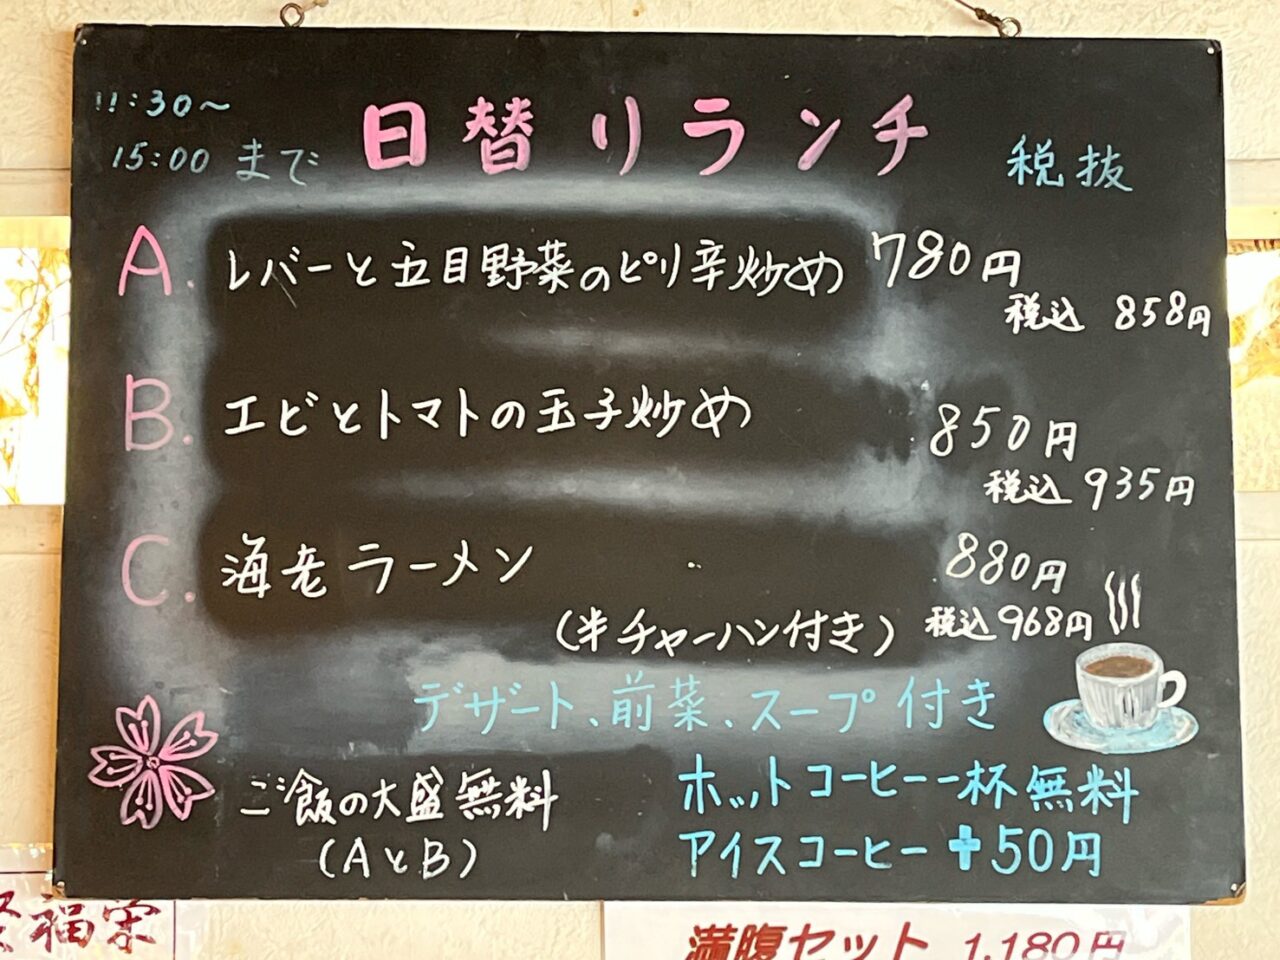 11:30～
15:00 まで
日替りランチ
税抜
A. レバーと五目野菜のピリ辛炒め 780円
税込 858円
B. エビとトマトの玉子炒め 850円
税込 935円
C. 海老ラーメン 880円
(半チャーハン付き) 税込968円
デザート、前菜、スープ付き
ご飯の大盛無料
(AとB)
ホットコーヒー一杯無料
アイスコーヒー+50円
福宋
満腹セット 1,180円